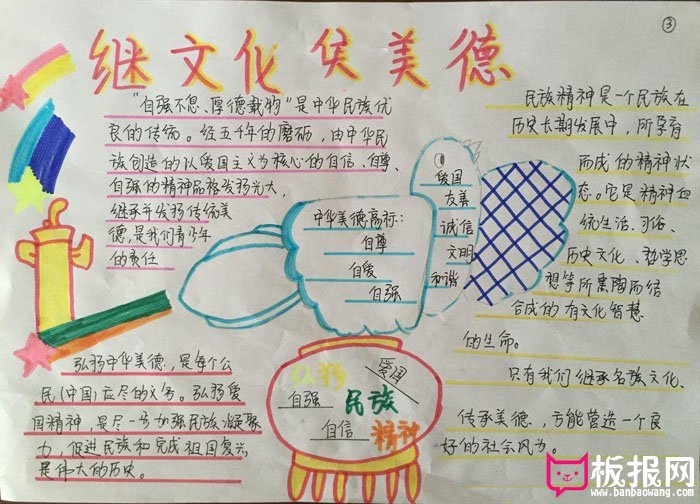 ③
继文化 传美德
"自强不息、厚德载物"是中华民族优
良的传统。经五千年的磨砺，由中华民
族创造的以爱国主义为核心的自信、自尊、
自强的精神品格发扬光大，
继承并发扬传统美
德，是我们青少年
的责任
中华美德高标：
自尊
自爱
自强
爱国
友善
诚信
文明
和谐
民族精神是一个民族在
历史长期发展中，所孕育
而成的精神状
态。它是精神血
统生活、习俗、
历史文化、哲学思
想等所熏陶而结
合成的有文化智慧
的生命。
只有我们继承名族文化、
传承美德，方能营造一个良
好的社会风力。
弘扬中华美德，是每个公
民（中国）应尽的义务。弘扬爱
国精神，是尽一步加强民族凝聚
力，促进民族和完成祖国复兴，
是伟大的历史。
弘扬
爱国
自强
民族
自信
精神
板报网
www.banbaowang.com